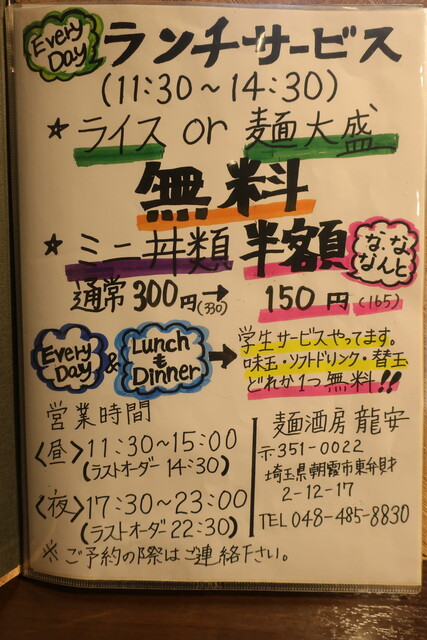 Every Day ランチサービス
(11:30～14:30)
★ ライス or 麺大盛
無料
★ ミニ丼類 半額 な、ななんと
通常 300円(330) → 150円(165)
Every Day & Lunch も Dinner → 学生サービスやってます。
味玉・ソフトドリンク・替玉
どれか1つ 無料!!
営業時間
〈昼〉11:30～15:00
(ラストオーダー 14:30)
〈夜〉17:30～23:00
(ラストオーダー 22:30)
※ ご予約の際はご連絡下さい。
麺酒房 龍安
〒351-0022
埼玉県朝霞市東弁財
2-12-17
TEL 048-485-8830